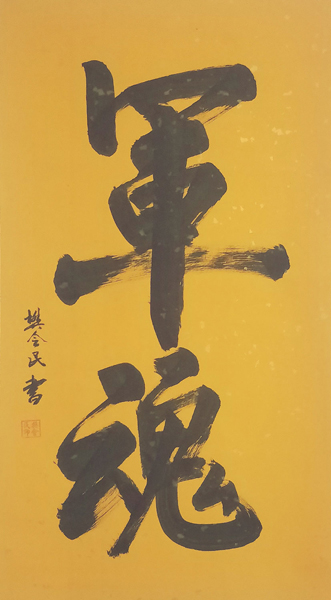 軍魂
樊令民書